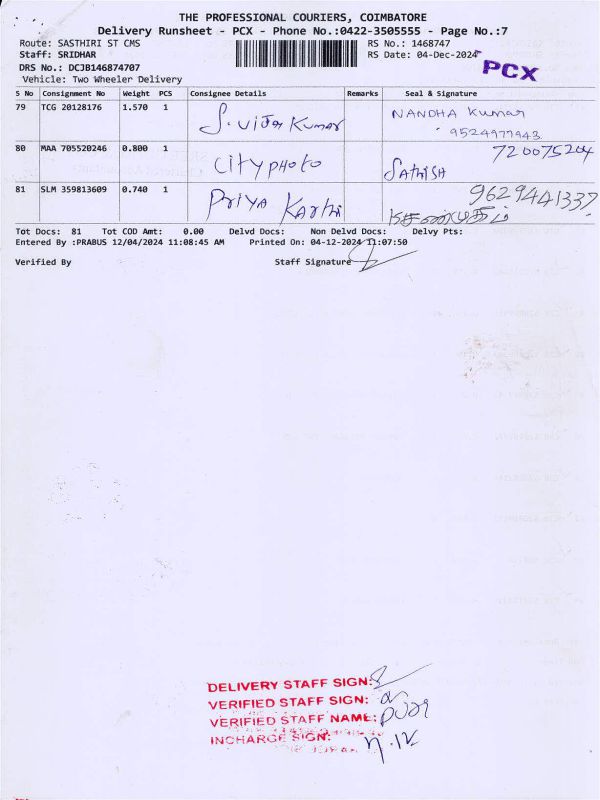 THE PROFESSIONAL COURIERS, COIMBATORE
Delivery Runsheet - PCX - Phone No.:0422-3505555 - Page No.:7
Route: SASTHIRI ST CMS
RS No.: 1468747
Staff: SRIDHAR
RS Date: 04-Dec-2024
DRS No.: DCJB146874707
PCX
Vehicle: Two Wheeler Delivery
S No Consignment No Weight PCS Consignee Details Remarks Seal & Signature
79 TCG 20128176 1.570 1 S. Vijay Kumar NANDHA Kumar
9524977943
80 MAA 705520246 0.800 1 City PHOTO SATHISH 720075204
81 SLM 359813609 0.740 1 PRIYA KARTHI 9629441337
Tot Docs: 81 Tot COD Amt: 0.00 Delvd Docs: Non Delvd Docs: Delvy Pts:
Entered By :PRABUS 12/04/2024 11:08:45 AM Printed On: 04-12-2024 11:07:50
Verified By Staff Signature
DELIVERY STAFF SIGN:
VERIFIED STAFF SIGN:
VERIFIED STAFF NAME:
INCHARGE SIGN: